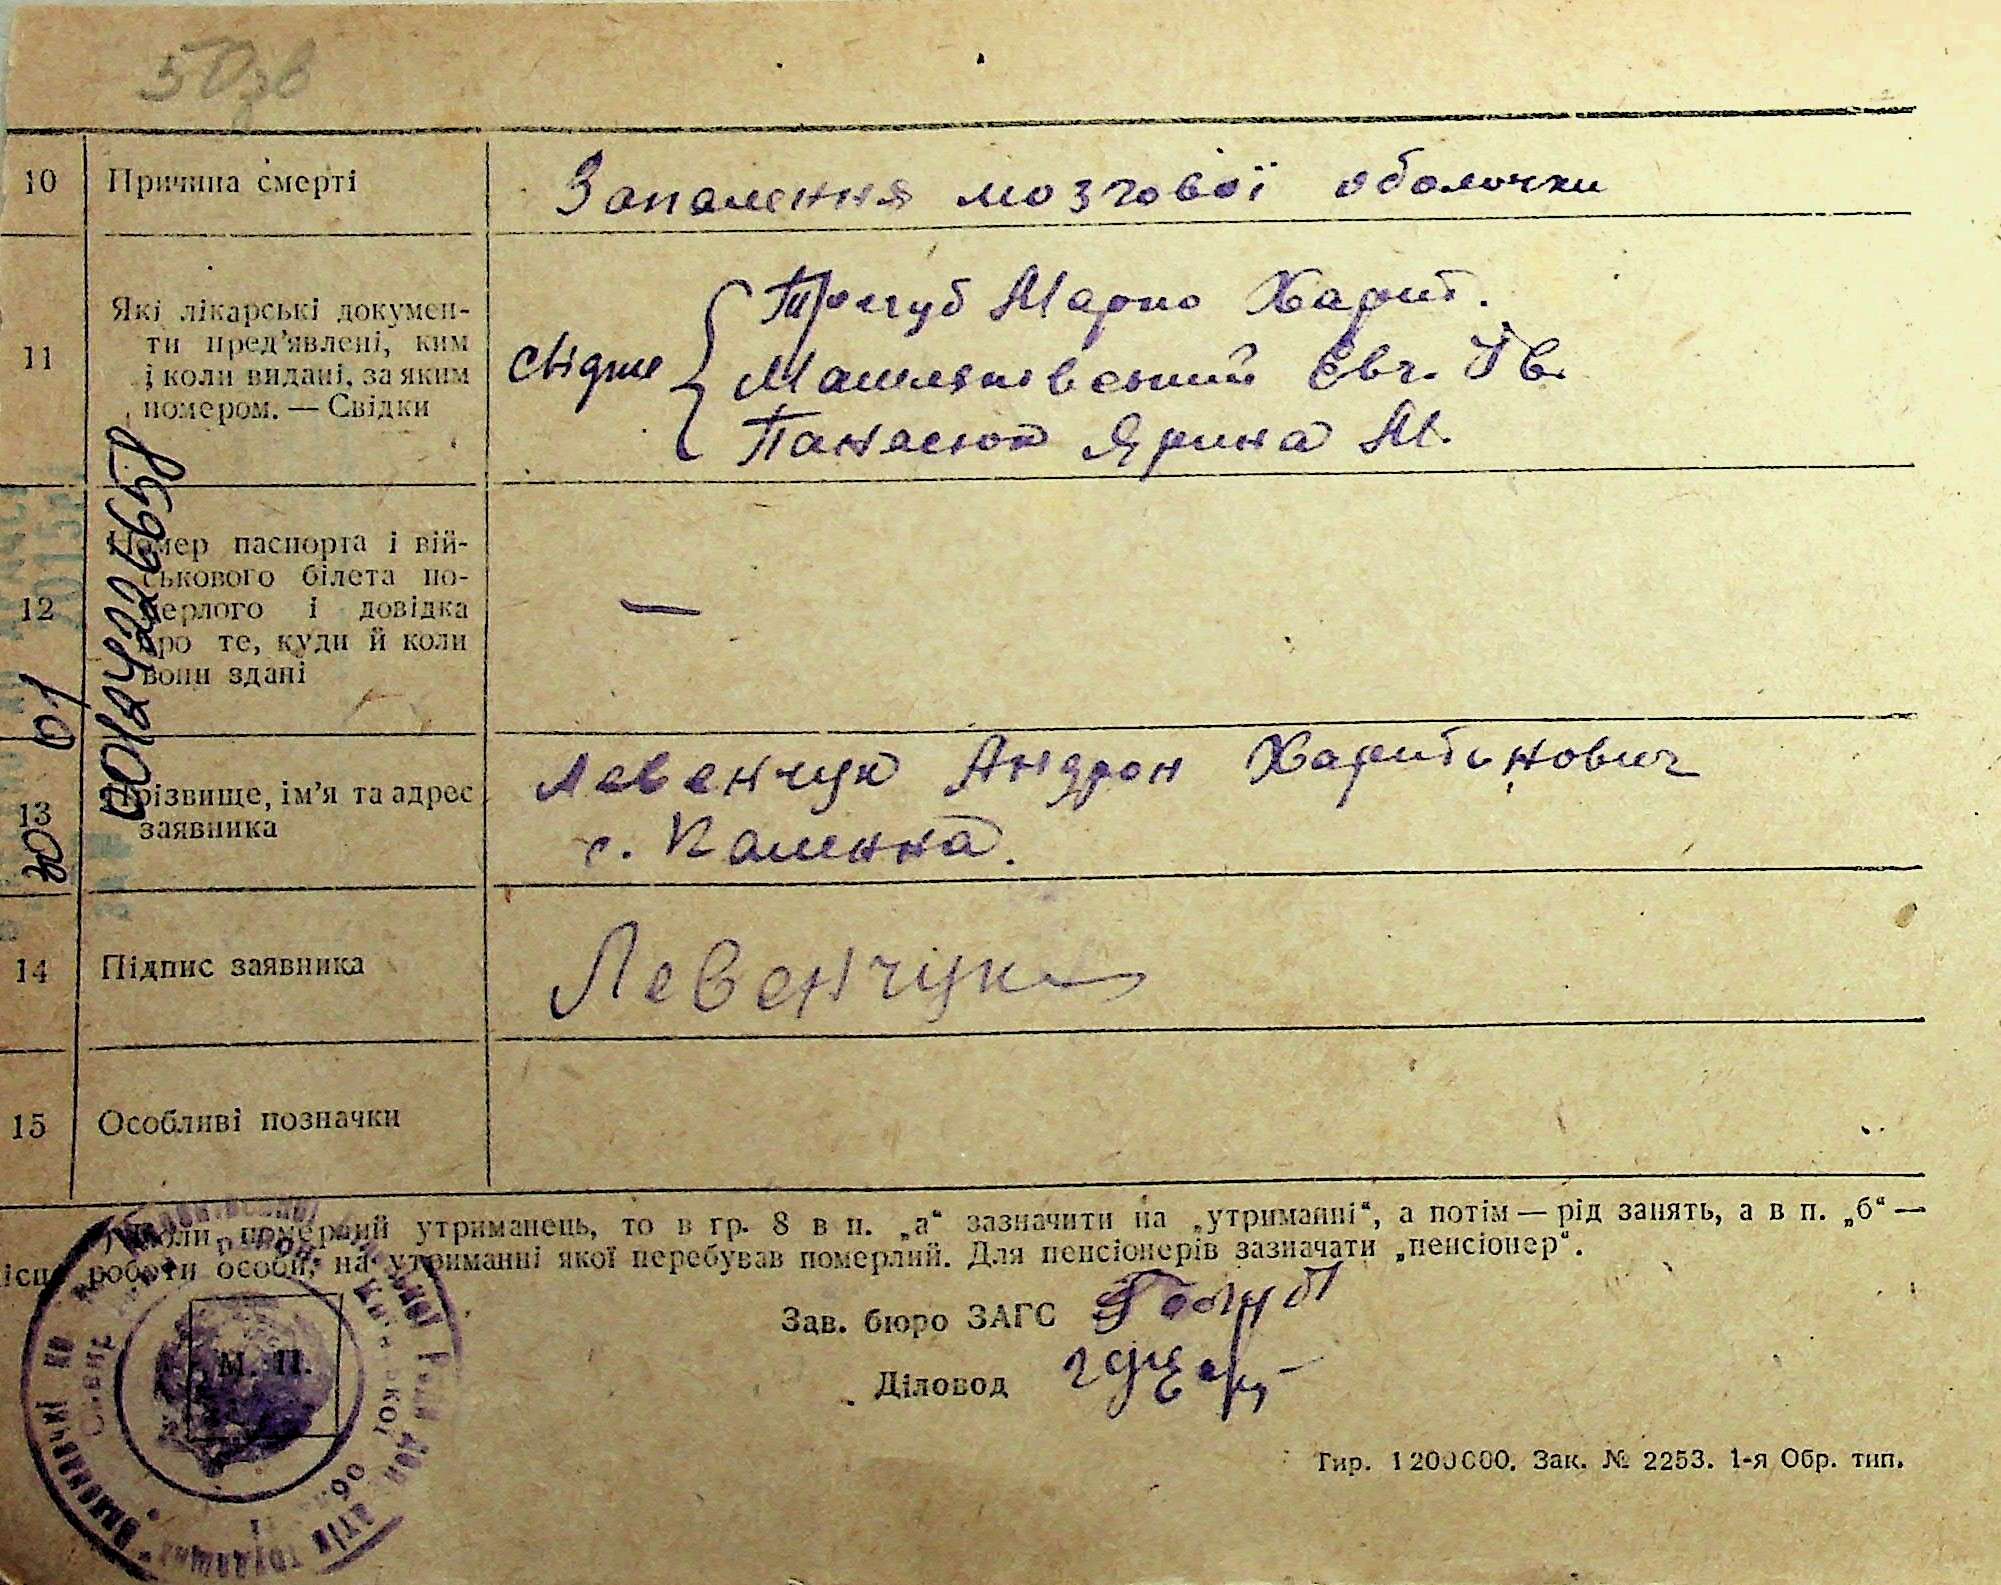 50зв
10 Причина смерті Запалення мозгової оболочки
11 Які лікарські докумен-
ти пред’явлені, ким
і коли видані, за яким
номером. — Свідки
свідки
Трегуб Марко Харит.
Євг. Ів.
Панасюк Ярина М.
12 Номер паспорта і вій-
ськового білета по-
мерлого і довідка
про те, куди й коли
вони здані —
13 Прізвище, ім’я та адрес
заявника
Левенчук Андрон Харитонович
с. Каленна.
14 Підпис заявника Левенчук
15 Особливі позначки
Коли померлий утриманець, то в гр. 8 в п. „а“ зазначити на „утриманні“, а потім — рід занять, а в п. „б“ —
місце роботи особи, на утриманні якої перебував померлий. Для пенсіонерів зазначати „пенсіонер“.
Зав. бюро ЗАГС
Діловод
М. П.
Тир. 1200000. Зак. № 2253. 1-я Обр. тип.